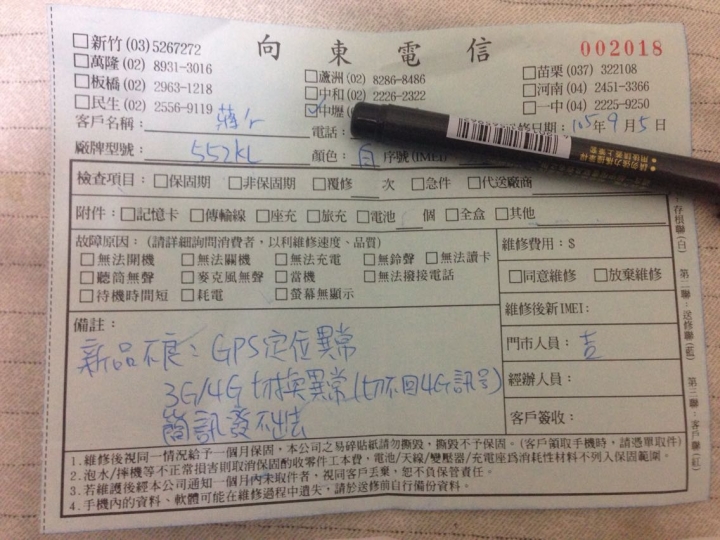 向東電信
002018
□新竹(03)5267272
□萬隆(02) 8931-3016
□板橋(02) 2963-1218
□民生(02) 2556-9119
□蘆洲(02) 8286-8486
□中和(02) 2226-2322
☑中壢(
□苗栗(037) 322108
□河南(04) 2451-3366
□一中(04) 2225-9250
客戶名稱：蔣
電話：
修日期：105年9月5日
廠牌型號：552KL 顏色：白 序號(IMEI)
檢查項目：□保固期 □非保固期 □覆修 次 □急件 □代送廠商
附件：□記憶卡 □傳輸線 □座充 □旅充 □電池 個 □全盒 □其他
故障原因：(請詳細詢問消費者，以利維修速度、品質)
□無法開機 □無法關機 □無法充電 □無鈴聲 □無法讀卡
□聽筒無聲 □麥克風無聲 □當機 □無法撥接電話
□待機時間短 □耗電 □螢幕無顯示
維修費用：$
□同意維修 □放棄維修
維修後新IMEI：
門市人員：吉
經辦人員：
客戶簽收：
備註：
新品不良：GPS定位異常
3G/4G切換異常(切不回4G訊号)
簡訊發不出去
1.維修後視同一情況給予一個月保固，本公司之易碎貼紙請勿撕毀，撕毀不予保固。(客戶領取手機時，請憑單取件)
2.泡水/摔機等不正常損害則取消保固酌收零件工本費，電池/天線/變壓器/充電座為消耗性材料不列入保固範圍。
3.若維護後經本公司通知一個月內未取件者，視同客戶丟棄，恕不負保管責任。
4.手機內的資料、軟體可能在維修過程中遺失，請於送修前自行備份資料。
存根聯(白) 第二聯：送修聯(藍) 第三聯：客戶聯(紅)